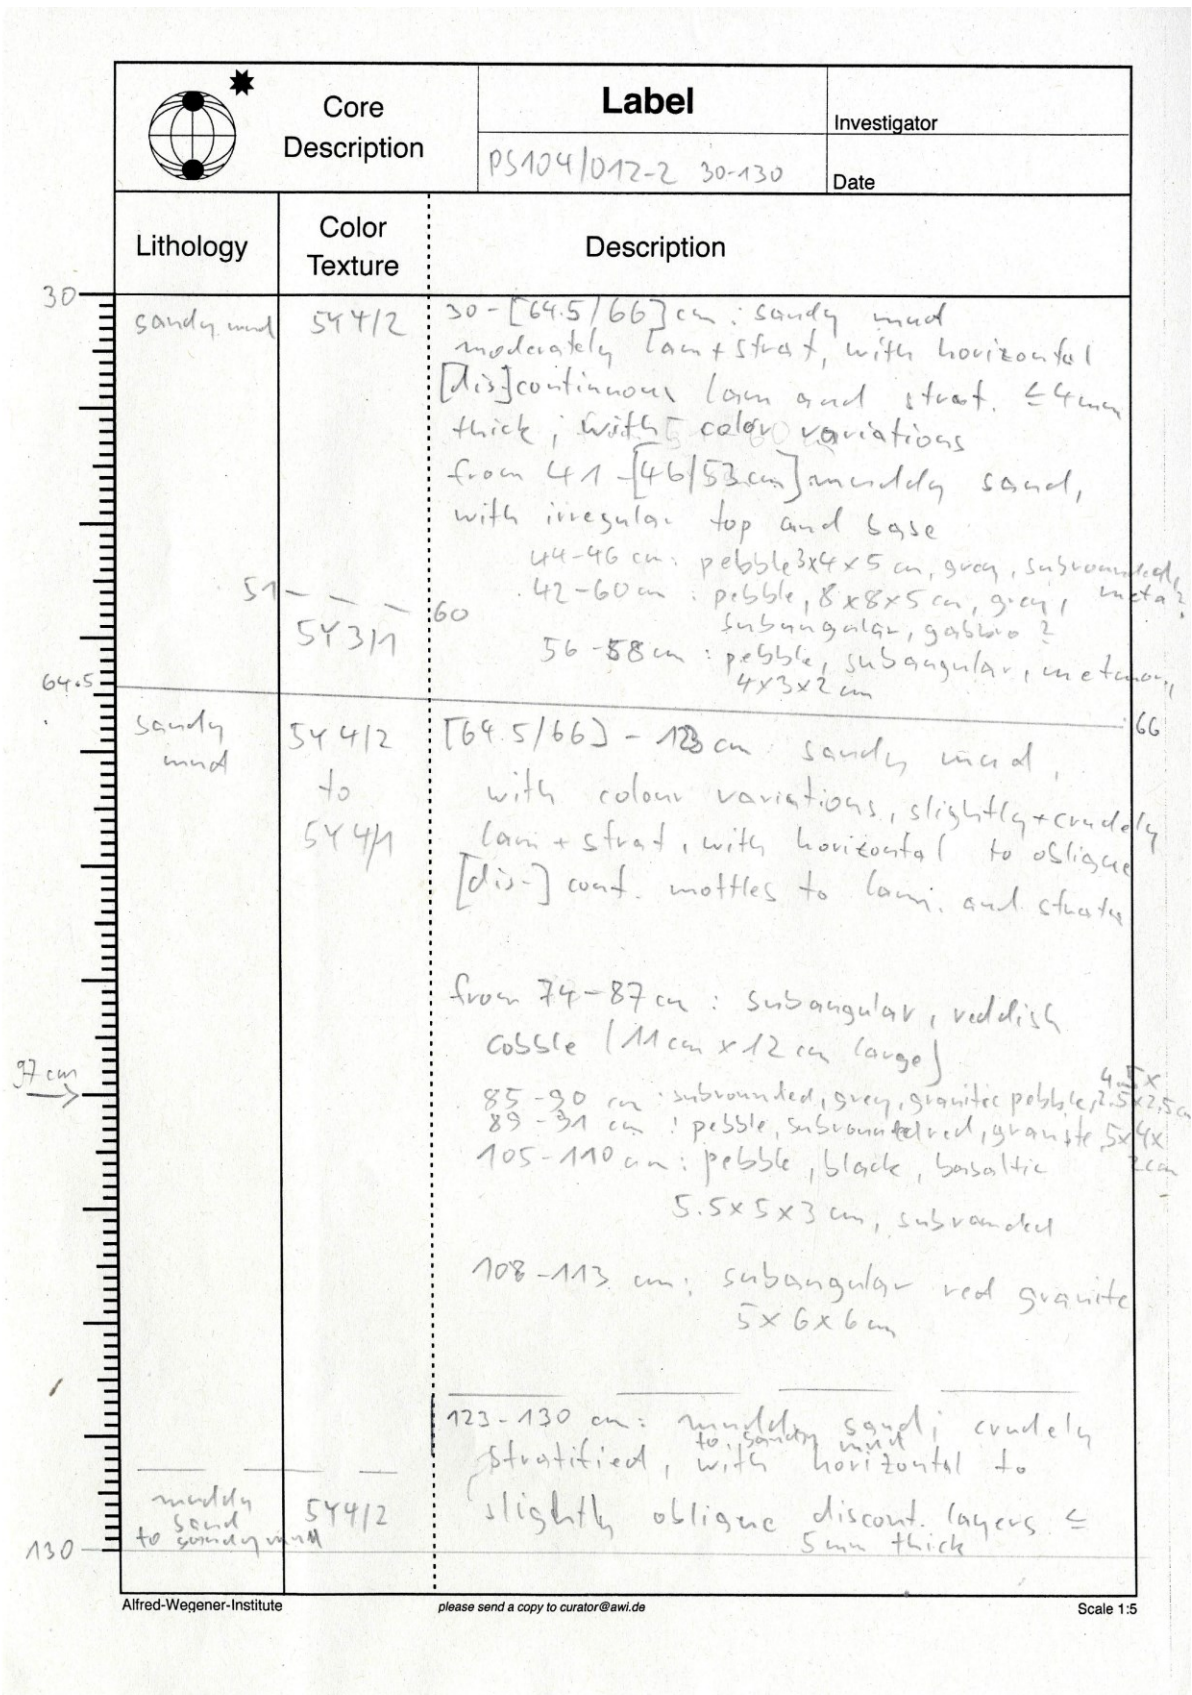 Core
Description
Label
Investigator
PS104/012-2 30-130
Date
Lithology
Color
Texture
Description
30
sandy mud
5Y 4/2
30-[64.5/66] cm: sandy mud
moderately lam + strat, with horizontal
[dis]continuous lam and strat. ≤4mm
thick, with color variations
from 41-[46/53 cm] muddy sand,
with irregular top and base
44-46 cm: pebble 3x4x5 cm, grey, subrounded,
42-60 cm: pebble, 8x8x5 cm, grey, meta?
subangular, gabbro?
51
60
5Y 3/1
56-58 cm: pebble, subangular, metamor.,
4x3x2 cm
64.5
66
sandy
mud
5Y 4/2
to
5Y 4/1
[64.5/66] - 123 cm: sandy mud,
with colour variations, slightly + crudely
lam + strat, with horizontal to oblique
[dis-] cont. mottles to lami. and strata
from 74-87 cm: subangular, reddish
cobble (11 cm x 12 cm large)
97 cm
85-90 cm: subrounded, grey, granitic pebble, 4.5x
2.5x2.5cm
89-91 cm: pebble, subrounded red, granite, 5x4x
2cm
105-110 cm: pebble, black, basaltic
5.5x5x3 cm, subrounded
108-113 cm: subangular red granite
5x6x6 cm
123-130 cm: muddy sand; crudely
to sandy mud
stratified, with horizontal to
slightly oblique discont. layers ≤
5mm thick
muddy
sand
to sandy mud
5Y4/2
130
Alfred-Wegener-Institute
please send a copy to curator@awi.de
Scale 1:5